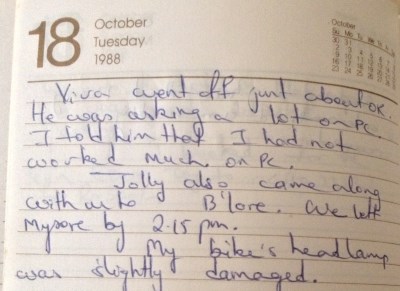 18
October
Tuesday
1988
October
Viva went off just about OK.
He was asking a lot on PC.
I told him that I had not
worked much on PC.
Jolly also came along
with us to B'lore. We left
Mysore by 2.15 pm.
My bike's headlamp
was slightly damaged.